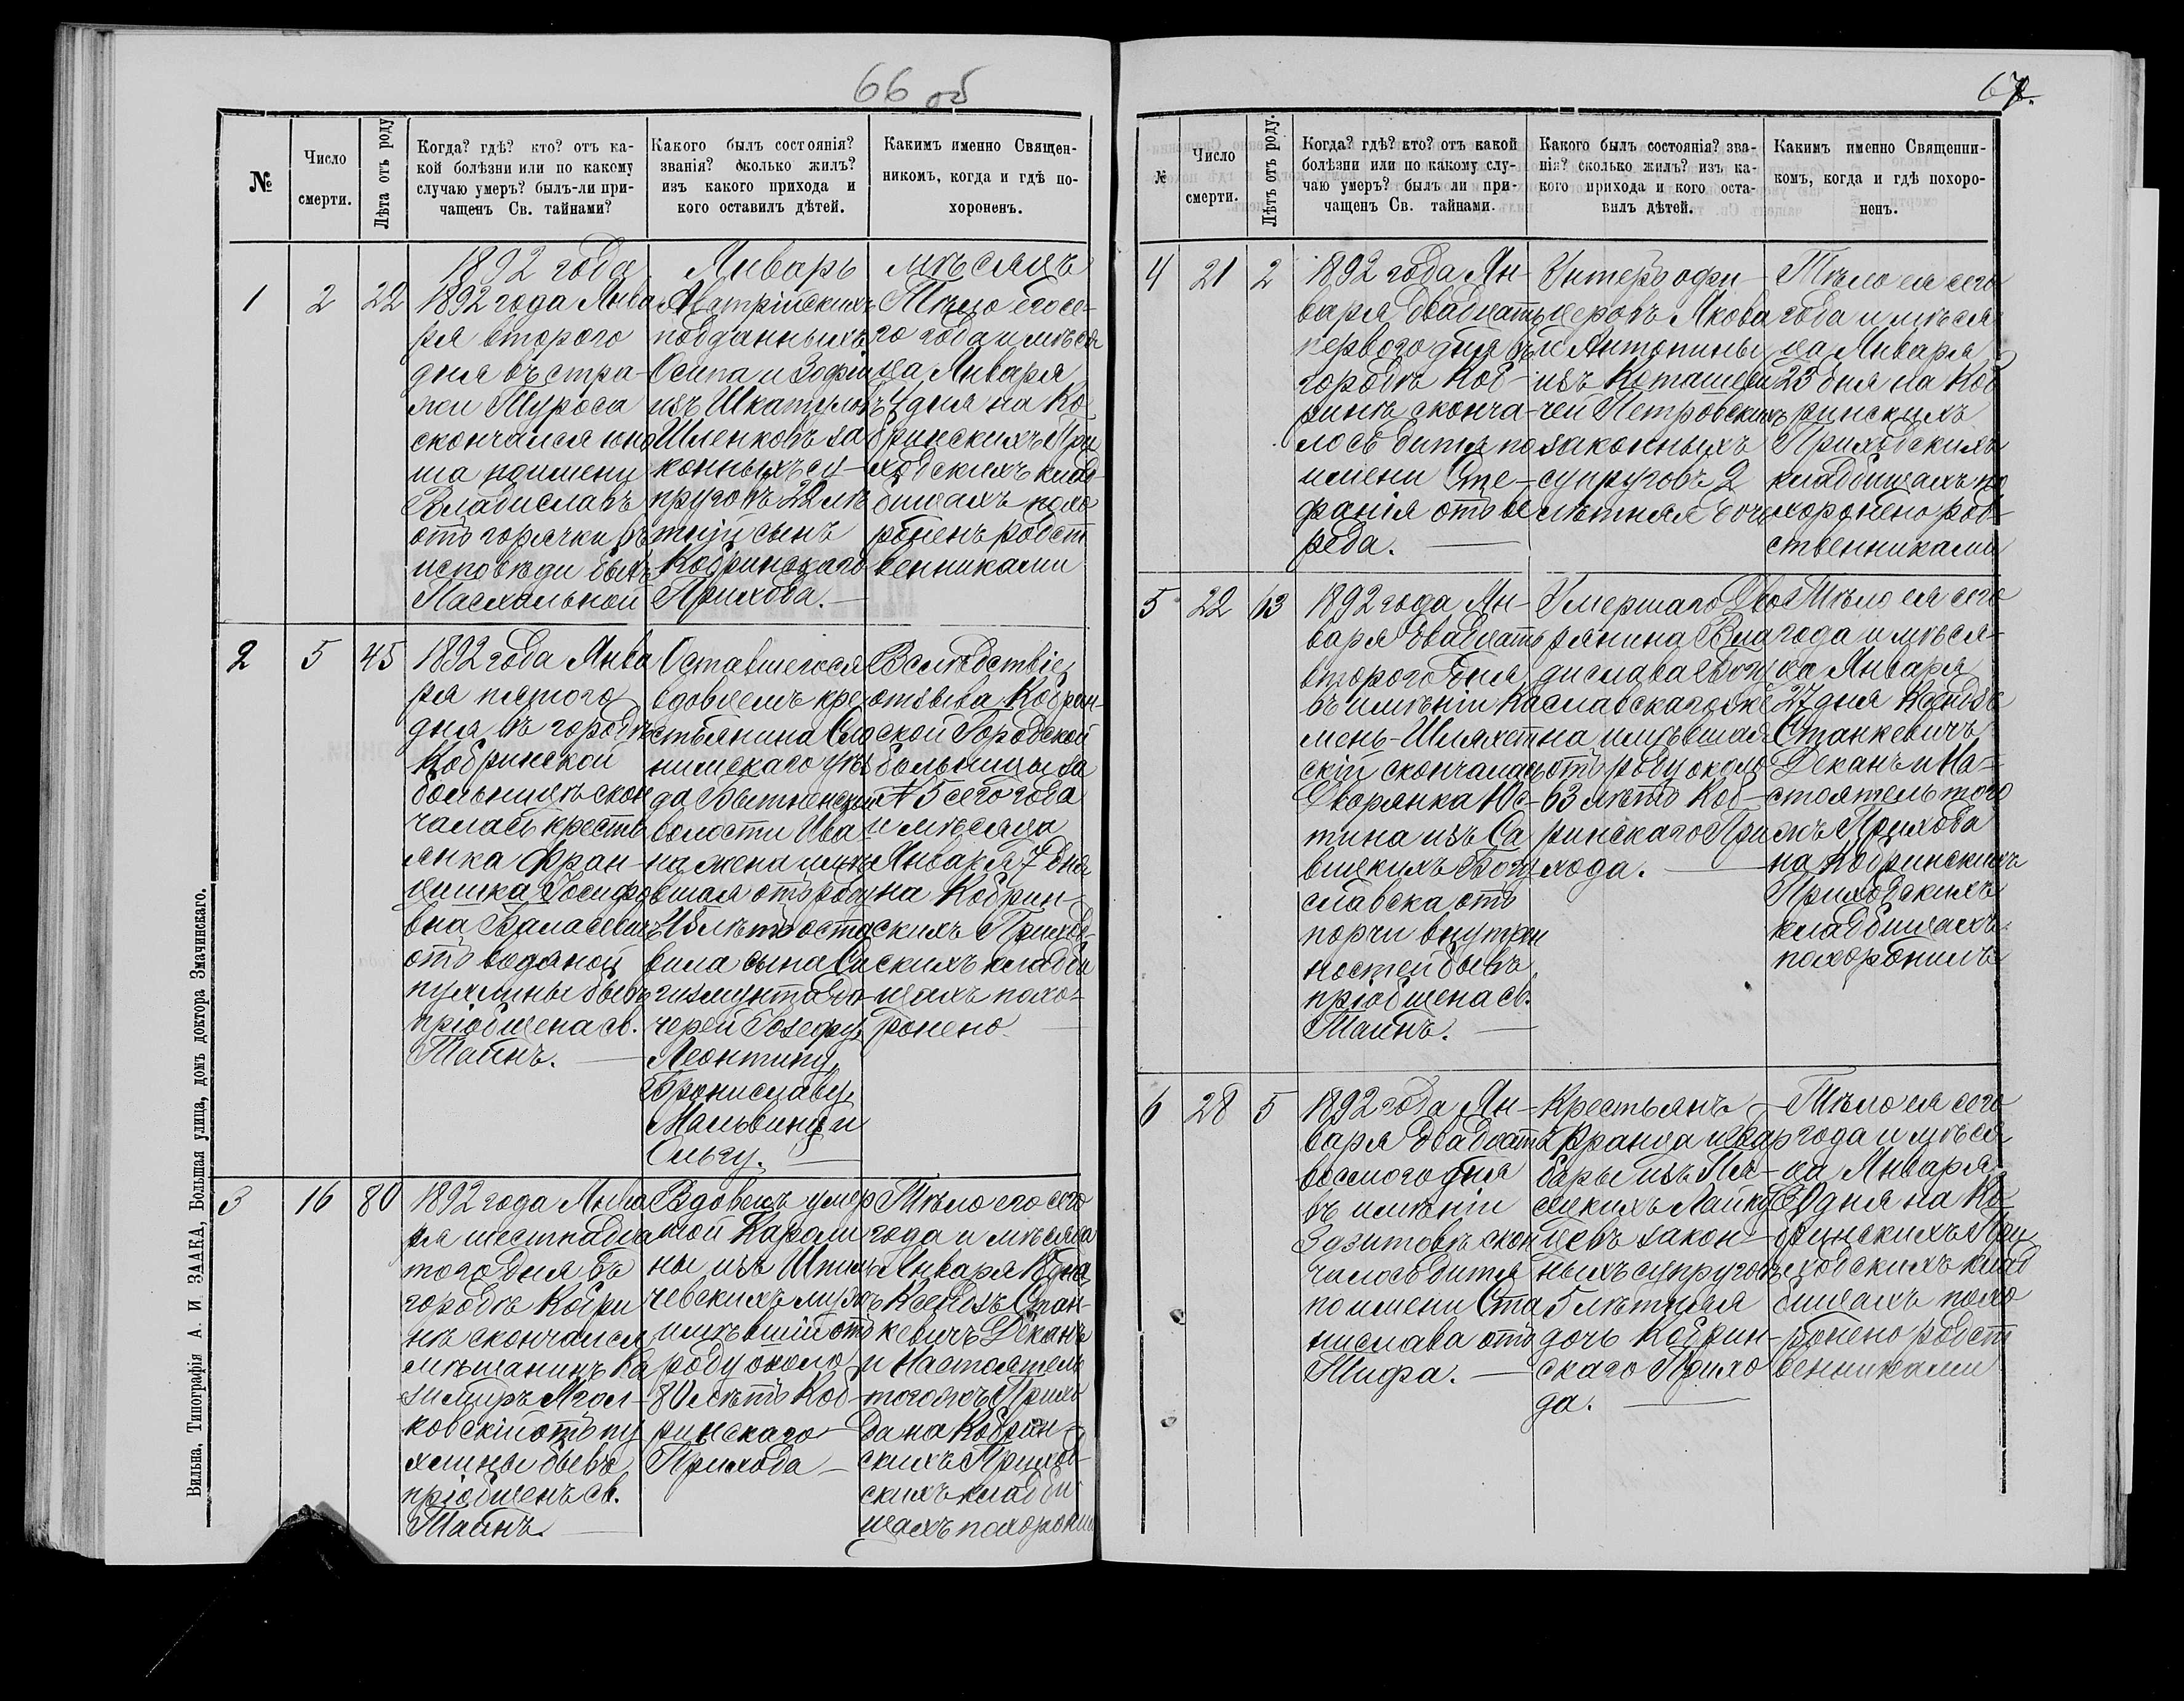 66 об
№
Число
смерти.
Лѣта отъ роду
Когда? гдѣ? кто? отъ ка-
кой болѣзни или по какому
случаю умеръ? былъ-ли при-
чащенъ Св. тайнами?
Какого былъ состоянія?
званія? сколько жилъ?
изъ какого прихода и
кого оставилъ дѣтей.
Каким именно Священ-
никомъ, когда и гдѣ по-
хороненъ.
1892 года Январь мѣсяцъ
1
2
22
1892 года Янва
ря второго
дня въ стра-
жи Туроса
скончался юно
ша по имени
Владиславъ
отъ горячки въ
исповѣди бывъ
Пасхальной
Австрійскихъ
подданныхъ
Осипа и Зофіи
изъ Шкатуловъ
Шленковъ за
конныхъ су-
пруговъ 22 лѣ
тній сынъ
Кобринскаго
Прихода.
Тѣло его се-
го года и мѣся
ца Января
4 дня на Ко
бринскихъ При
ходскихъ клад
бищахъ похо
роненъ родст
венниками
2
5
45
1892 года Янва
ря пятого
дня въ городѣ
Кобринской
больницѣ скон
чалась кресть
янка Фран-
цишка Іосифо
вна Баласевичъ
отъ водяной
пухлины бывъ
пріобщена св.
Таинъ.
Оставшегося
вдовцемъ кре
стьянина Сло
нимскаго уѣз
да Бытенской
волости Ива
на жена имѣ
вшая отъ роду
45 лѣтъ оста
вила сына Си
гизмунта до-
черей Іозефу,
Леонтину,
Брониславу,
Мальвину и
Ольгу.
Вслѣдствіе
отзыва Кобрин-
ской Городской
больницы за
№ 5 сего года
и мѣсяца
Января 7 дня
на Кобрин-
скихъ Приход-
скихъ кладби
щахъ похо-
ронено
3
16
80
1892 года Янва
ря шестнадца
того дня въ
городѣ Кобри
нѣ скончался
мѣщанинъ Ка
зимиръ Ягол-
ковскій отъ пу
хлины бывъ
пріобщенъ св.
Таинъ.
Вдовецъ умер
шой Кароли
ны изъ Шпил
чевскихъ мужъ
имѣвшій отъ
роду около
80 лѣтъ Коб-
ринскаго
Прихода
Тѣло его сего
года и мѣсяца
Января 18 дня
Ксендзъ Стан-
кевичъ Деканъ
и Настоятель
тогожъ Прихо
да на Кобрин-
скихъ Приход-
скихъ кладби
щахъ похоронил
Вильна, Типографія А. И ЗААКА, Большая улица, домъ доктора Змачинскаго.
67.
№
Число
смерти.
Лѣтъ отъ роду.
Когда? гдѣ? кто? отъ какой
болѣзни или по какому слу-
чаю умеръ? былъ ли при-
чащенъ Св. тайнами.
Какого былъ состоянія? зва-
нія? сколько жилъ? изъ ка-
кого прихода и кого оста-
вилъ дѣтей.
Какимъ именно Священни-
комъ, когда и гдѣ похоро-
ненъ.
4
21
2
1892 года Ян-
варя двадцать
перваго дня въ
городѣ Коб-
ринѣ сконча-
лось дитя по
имени Сте-
фанія отъ ве
реда.
Унтеръ офи-
церовъ Якова
и Антонины
изъ
Петровскихъ
законныхъ
супруговъ 2
лѣтняя дочь
Тѣло ея сего
года и мѣся
ца Января
23 дня на Коб
ринскихъ
Приходскихъ
кладбищахъ по
хоронено род-
ственниками
5
22
63
1892 года Ян-
варя двадцать
второго дня
въ имѣніи Ка
мень-Шляхет
скій скончалась
Дворянка Юс-
тина изъ Са
вицкихъ Богу
славска отъ
порчи внутрен
ностей бывъ
пріобщена св.
Таинъ.
Умершаго Дво
рянина Вла
дислава Богу
славскаго же
на имѣвшая
отъ роду около
63 лѣтъ Коб-
ринскаго При
хода.
Тѣло ея сего
года и мѣся-
ца Января
27 дня Ксендзъ
Станкевичъ
Деканъ и На-
стоятель того
жъ Прихода
на Кобринскихъ
Приходскихъ
кладбищахъ
похоронилъ
6
28
5
1892 года Ян-
варя двадцать
восмого дня
въ имѣніи
Зазитовѣ скон
чалось дитя
по имени Ста
нислава отъ
Тифа.
Крестьянъ
Франца и Вар
бары изъ
закон-
ныхъ супруговъ
5 лѣтняя
дочь Кобрин-
скаго Прихо
да.
Тѣло ея сего
года и мѣся
ца Января
30 дня на Ко-
бринскихъ При
ходскихъ клад
бищахъ похо
ронено родст
венниками